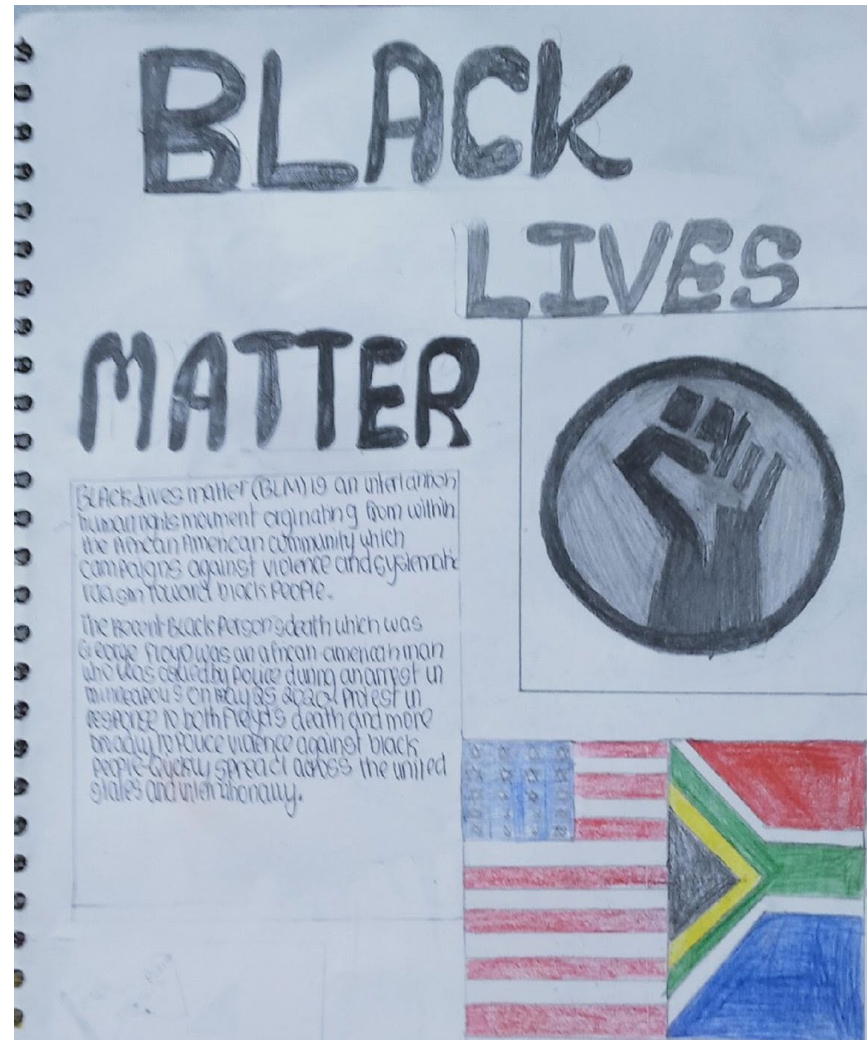 BLACK
LIVES
MATTER
BLACK Lives matter (BLM) is an
human rights moument orginating from within
the African American community which
campaigns against violence and systematic
toward black people.
The Recent Black Person's death which was
George Floyd was an african-american man
who was by police during an arrest in
on May 25 2020 Protest in
response to both Floyd's death and more
to police violence against black
people spread across the united
states and